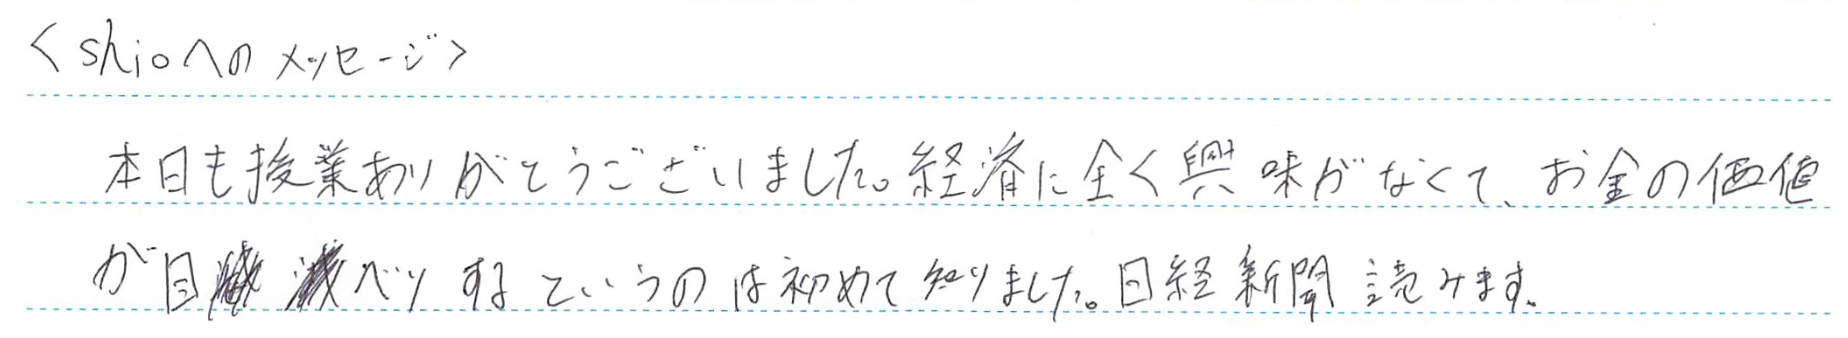 <shioへのメッセージ>
本日も授業ありがとうございました。経済に全く興味がなくて、お金の価値
が目ベリするというのは初めて知りました。日経新聞読みます。